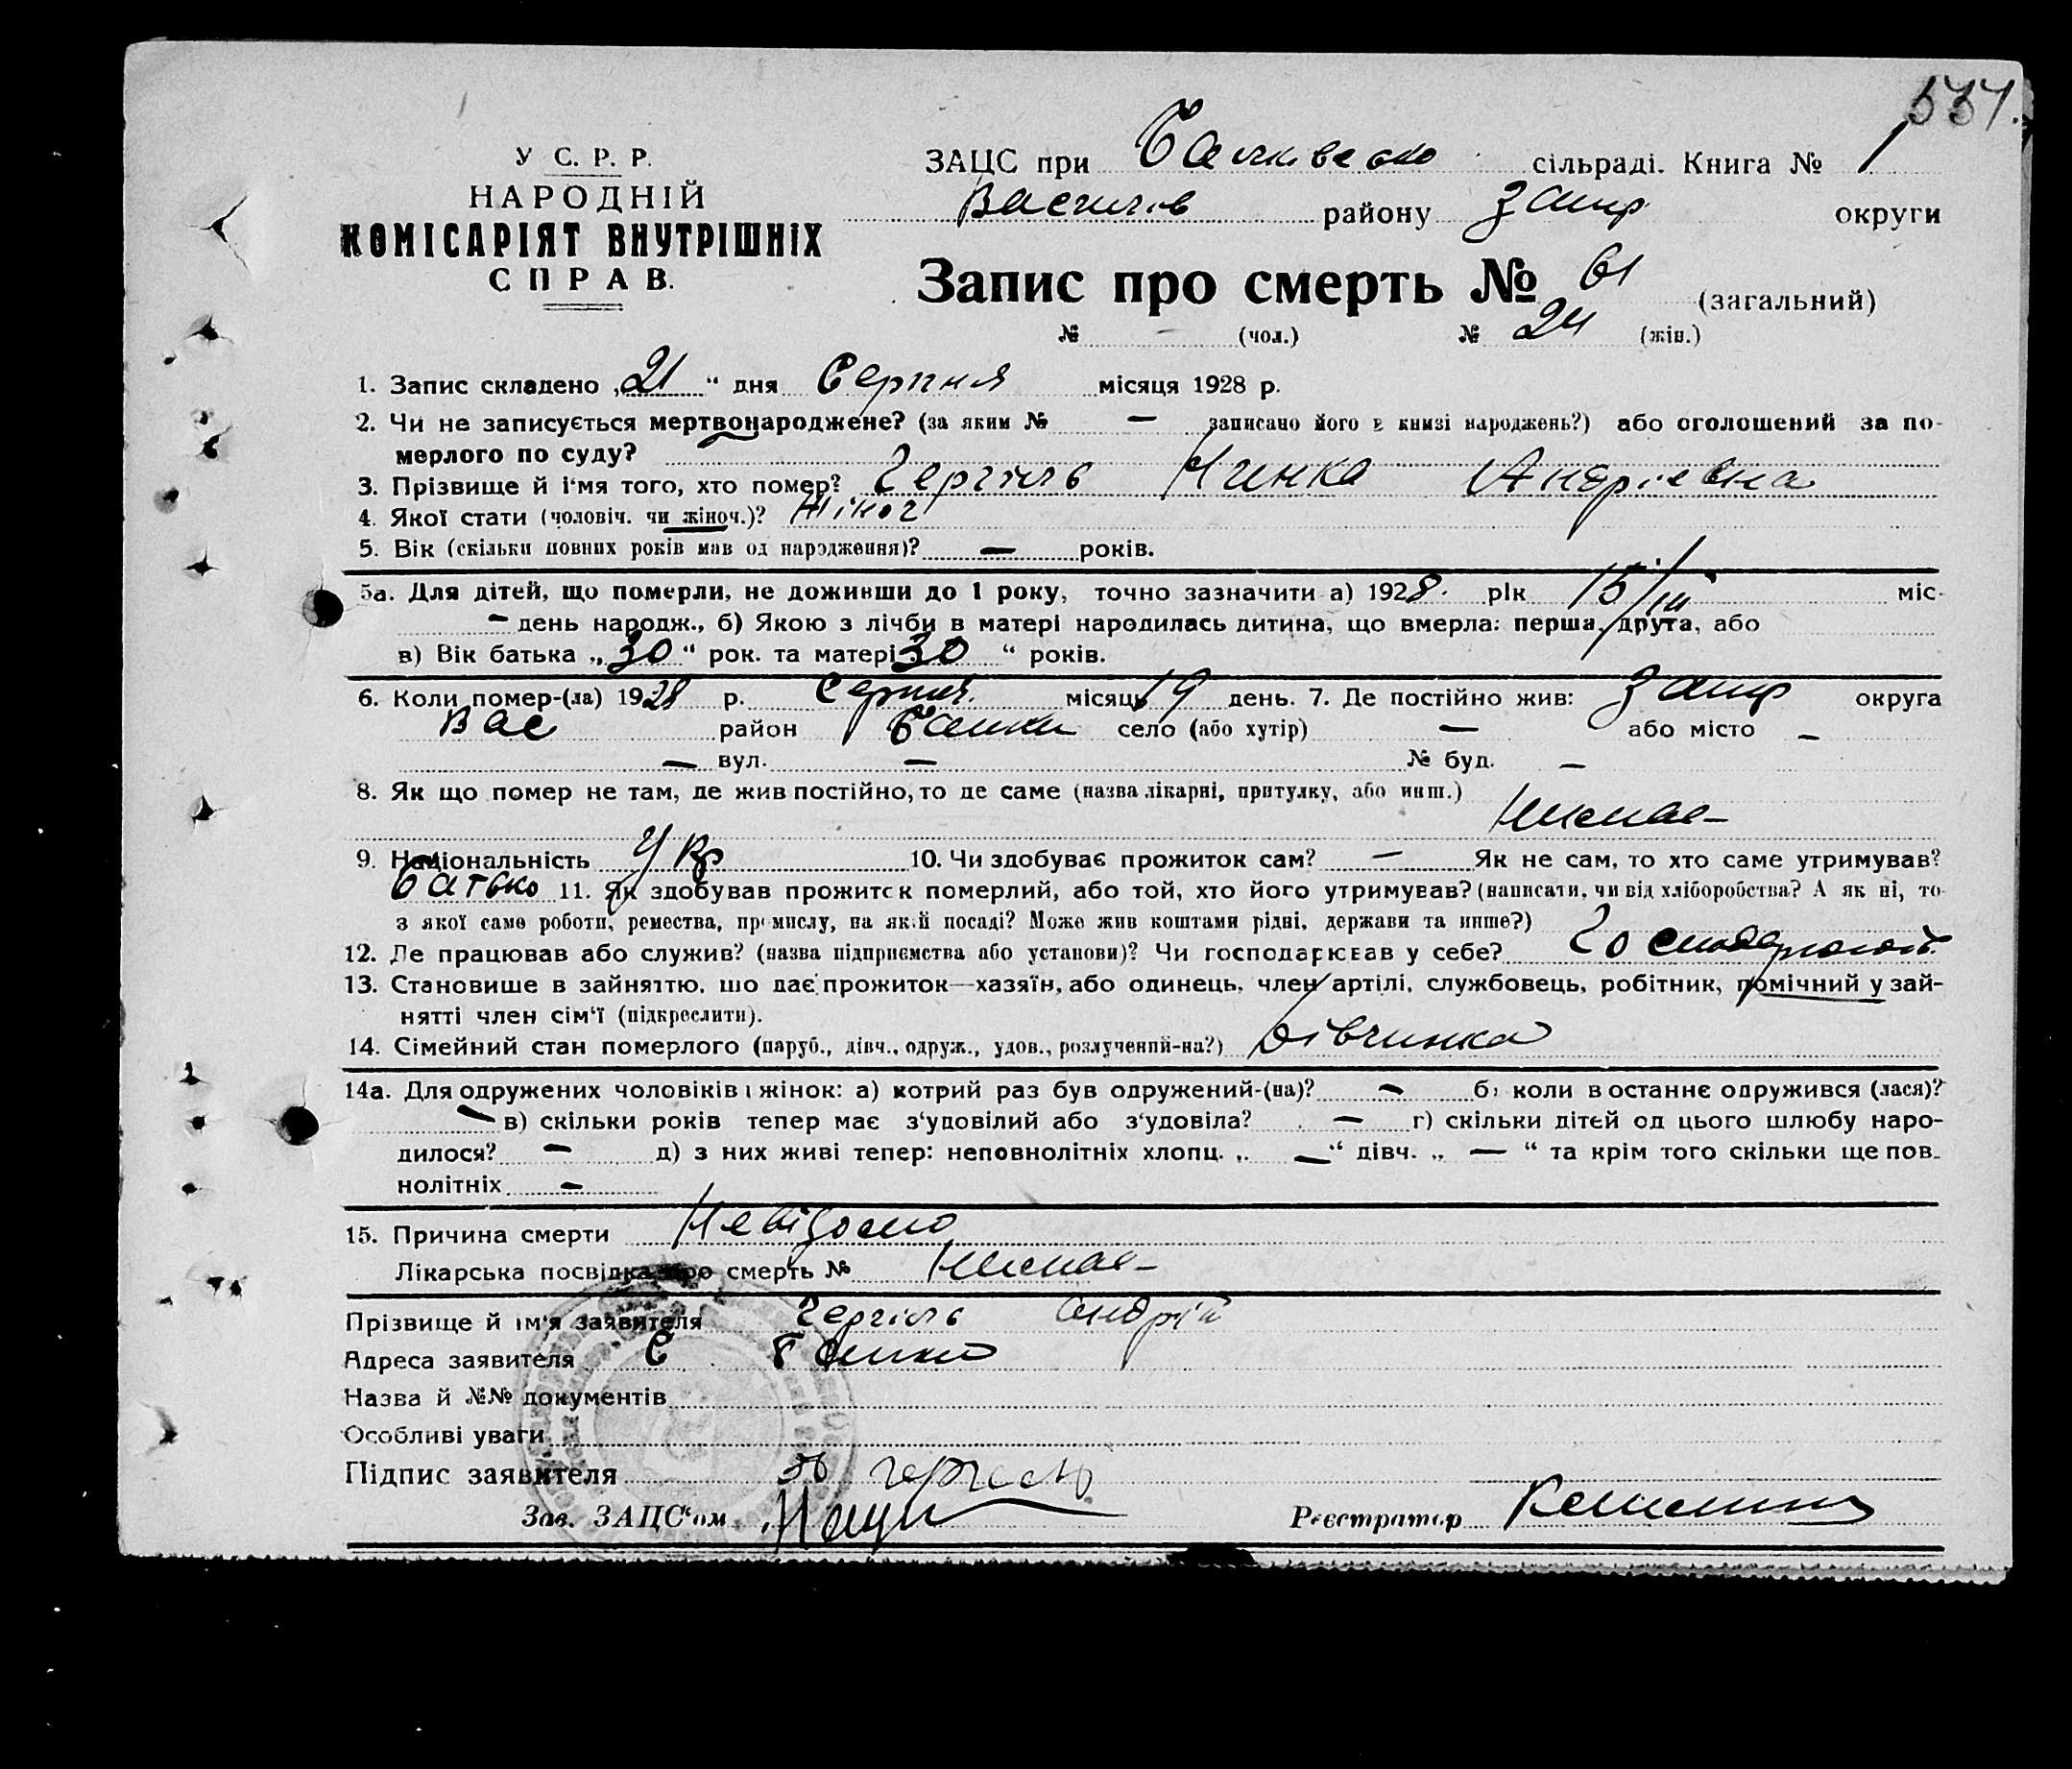 537.
У С. Р. Р.
НАРОДНІЙ
КОМІСАРІЯТ ВНУТРІШНІХ
СПРАВ.
ЗАЦС при сільраді. Книга № 1
Василів району Запор округи
Запис про смерть № 61 (загальний)
№ - (чол.) № 24 (жін.)
1. Запис складено „21“ дня Серпня місяця 1928 р.
2. Чи не записується мертвонароджене? (за яким № — записано його в книзі народжень?) або оголошений за по-
мерлого по суду?
3. Прізвище й і'мя того, хто помер? Чергіль Нинка Андріевна
4. Якої стати (чоловіч. чи жіноч.)? Жіноч
5. Вік (скільки повних років мав од народження)? — років.
5а. Для дітей, що померли, не доживши до 1 року, точно зазначити а) 1928. рік 15/III міс.
- день народж., б) Якою з лічби в матері народилась дитина, що вмерла: перша, друга, або
в) Вік батька „30“ рок. та матері 30 “ років.
6. Коли помер-(ла) 1928 р. Серпня місяць 19 день. 7. Де постійно жив: Запор округа
Вас район Балки село (або хутір) — або місто —
— вул. — № буд. —
8. Як що помер не там, де жив постійно, то де саме (назва лікарні, притулку, або инш.)
Немає
9. Національність Укр 10. Чи здобуває прожиток сам? — Як не сам, то хто саме утримував?
батько 11. Як здобував прожиток померлий, або той, хто його утримував? (написати, чи від хліборобства? А як ні, то
з якої саме роботи, ремества, промислу, на якій посаді? Може жив коштами рідні, держави та инше?)
12. Де працював або служив? (назва підприємства або установи)? Чи господарював у себе?
13. Становище в зайняттю, що дає прожиток—хазяїн, або одинець, член артілі, службовець, робітник, помічний у зай-
нятті член сім'ї (підкреслити).
14. Сімейний стан померлого (паруб., дівч., одруж., удов., розлучений-на?) Дівчинка
14а. Для одружених чоловіків і жінок: а) котрий раз був одружений-(на)? — б) коли востаннє одружився (лася)?
— в) скільки років тепер має з'удовілий або з'удовіла? — г) скільки дітей од цього шлюбу наро-
дилося? — д) з них живі тепер: неповнолітніх хлопц. „ —“ дівч. „ — “ та крім того скільки ще пов-
нолітніх —
15. Причина смерти Невідомо
Лікарська посвідка про смерть № Немає
Прізвище й ім'я заявителя Чергіль Андрій
Адреса заявителя С Балки
Назва й №№ документів
Особливі уваги
Підпис заявителя
Зав. ЗАЦС'ом Реєстратор